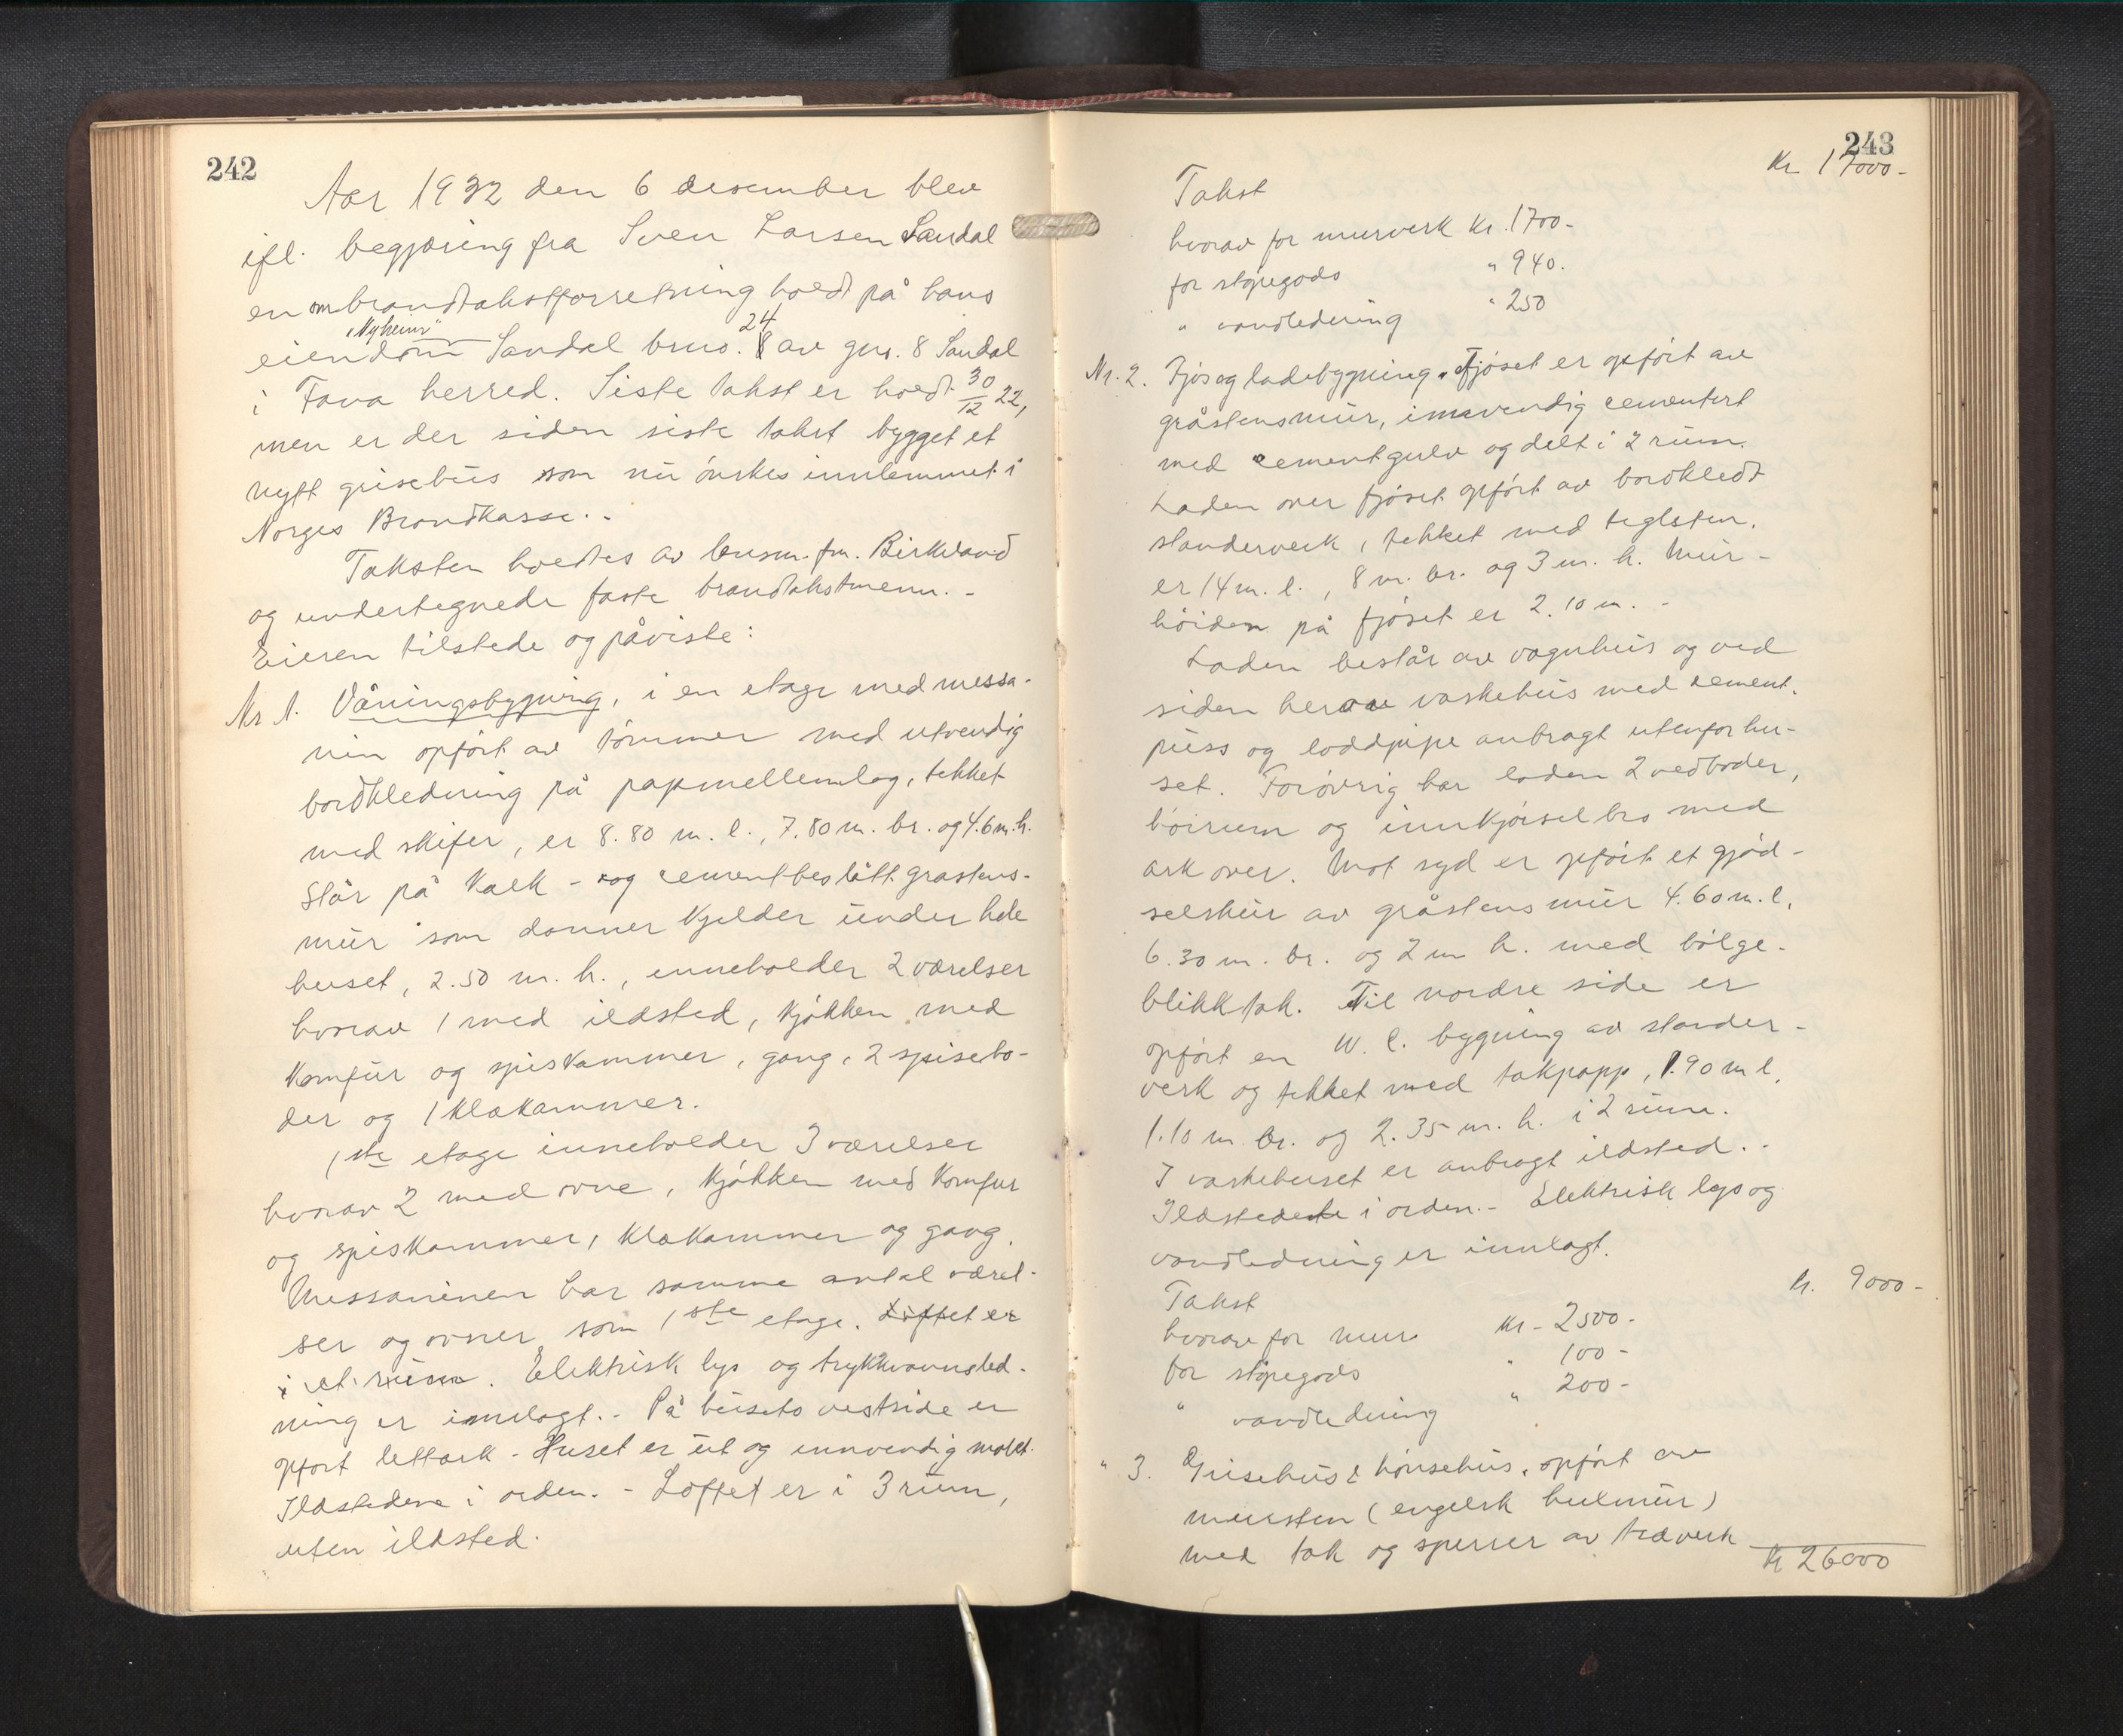 242
Aar 1932 den 6 desember blev
ifl. begjæring fra Sven Larsen Sandal
en ombrandtakstforretning holdt på hans
"Nyheim" 24
eiendom Sandal brno. 8 av gno. 8 Sandal
i Fana herred. Siste takst er holdt 30/12 22,
men er der siden siste takst bygget et
nytt grisehus som nu ønskes innlemmet i
Norges Brandkasse. -
Taksten holdtes av lensm. fm. Birkeland
og undertegnede faste brandtakstmenn. -
Eieren tilstede og påviste:
Nr 1. Våningsbygning, i en etage med messa-
nin opført av tømmer med utvendig
bordkledning på papmellemlag, tekket
med skifer, er 8.80 m. l., 7.80 m. br. og 4.6 m. h.
Står på kalk- og cementbeslått gråstens-
mur som danner kjelder under hele
huset, 2.50 m. h., inneholder 2 værelser
hvorav 1 med ildsted, kjøkken med
komfur og spiskammer, gang, 2 spisebo-
der og 1 klækammer.
1ste etage inneholder 3 værelser
hvorav 2 med ovne, kjøkken med komfur
og spiskammer, klækammer og gang.
Messaninen har samme antal værel-
ser og ovner som 1ste etage. Loftet er
i et rum. Elektrisk lys og trykkvannsled-
ning er innlagt. - På husets vestside er
opført lettark - Huset er ut og innvendig malet.
Ildstedene i orden. - Loftet er i 3 rum,
uten ildsted.
243
Takst Kr 17000-
hvorav for murverk Kr. 1700-
for støpegods " 940.
" vandledning " 250
Nr. 2. Fjøs og ladebygning. Fjøset er opført av
gråstensmur, innvendig cementert
med cementgulv og delt i 2 rum.
Laden over fjøset opført av bordkledt
standerverk, tekket med teglsten,
er 14 m. l., 8 m. br. og 3 m. h. Mur-
høiden på fjøset er 2.10 m. -
Laden består av vognhus og ved
siden herav vaskehus med cement-
puss og loddpipe anbragt utenfor hu-
set. Forøvrig har laden 2 vedboder,
høirum og innkjørselbro med
ark over. Mot syd er opført et gjød-
selskur av gråstensmur 4.60 m. l,
6.30 m. br. og 2 m h. med bølge-
blikktak. Til nordre side er
opført en W. C. bygning av stander-
verk og tekket med takpapp, 1.90 m l,
1.10 m br. og 2.35 m. h. i 2 rum.
I vaskehuset er anbragt ildsted. -
Ildstedene i orden. - Elektrisk lys og
vandledning er innlagt.
Takst kr. 9000-
hvorav for mur Kr - 2500-
for støpegods " 100-
" vandledning " 200-
" 3. Grisehus & hønsehus, opført av
mursten (engelsk hulmur)
med tak og sperrer av træverk
kr 26000